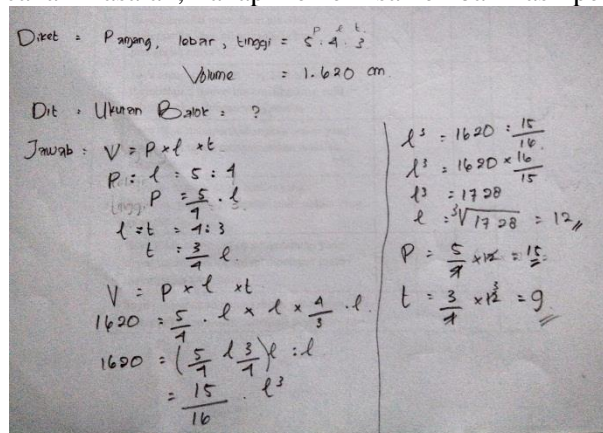 p l t
Diket : Panjang, lebar, tinggi = 5 . 4 . 3
Volume = 1.620 cm
Dit : Ukuran Balok : ?
Jawab : V = P x l x t
P : l = 5 : 4
P = 5/4 . l
l : t = 4 : 3
t : 3/4 l.
V = P x l x t
1620 = 5/4 . l x l x 4/3 . l
1620 = (5/4 l 3/4) l : l
= 15/16 . l³
l³ = 1620 : 15/16
l³ = 1620 x 16/15
l³ = 1728
l = ³√1728 = 12
P = 5/4 x 12 = 15
t = 3/4 x 12 3 = 9